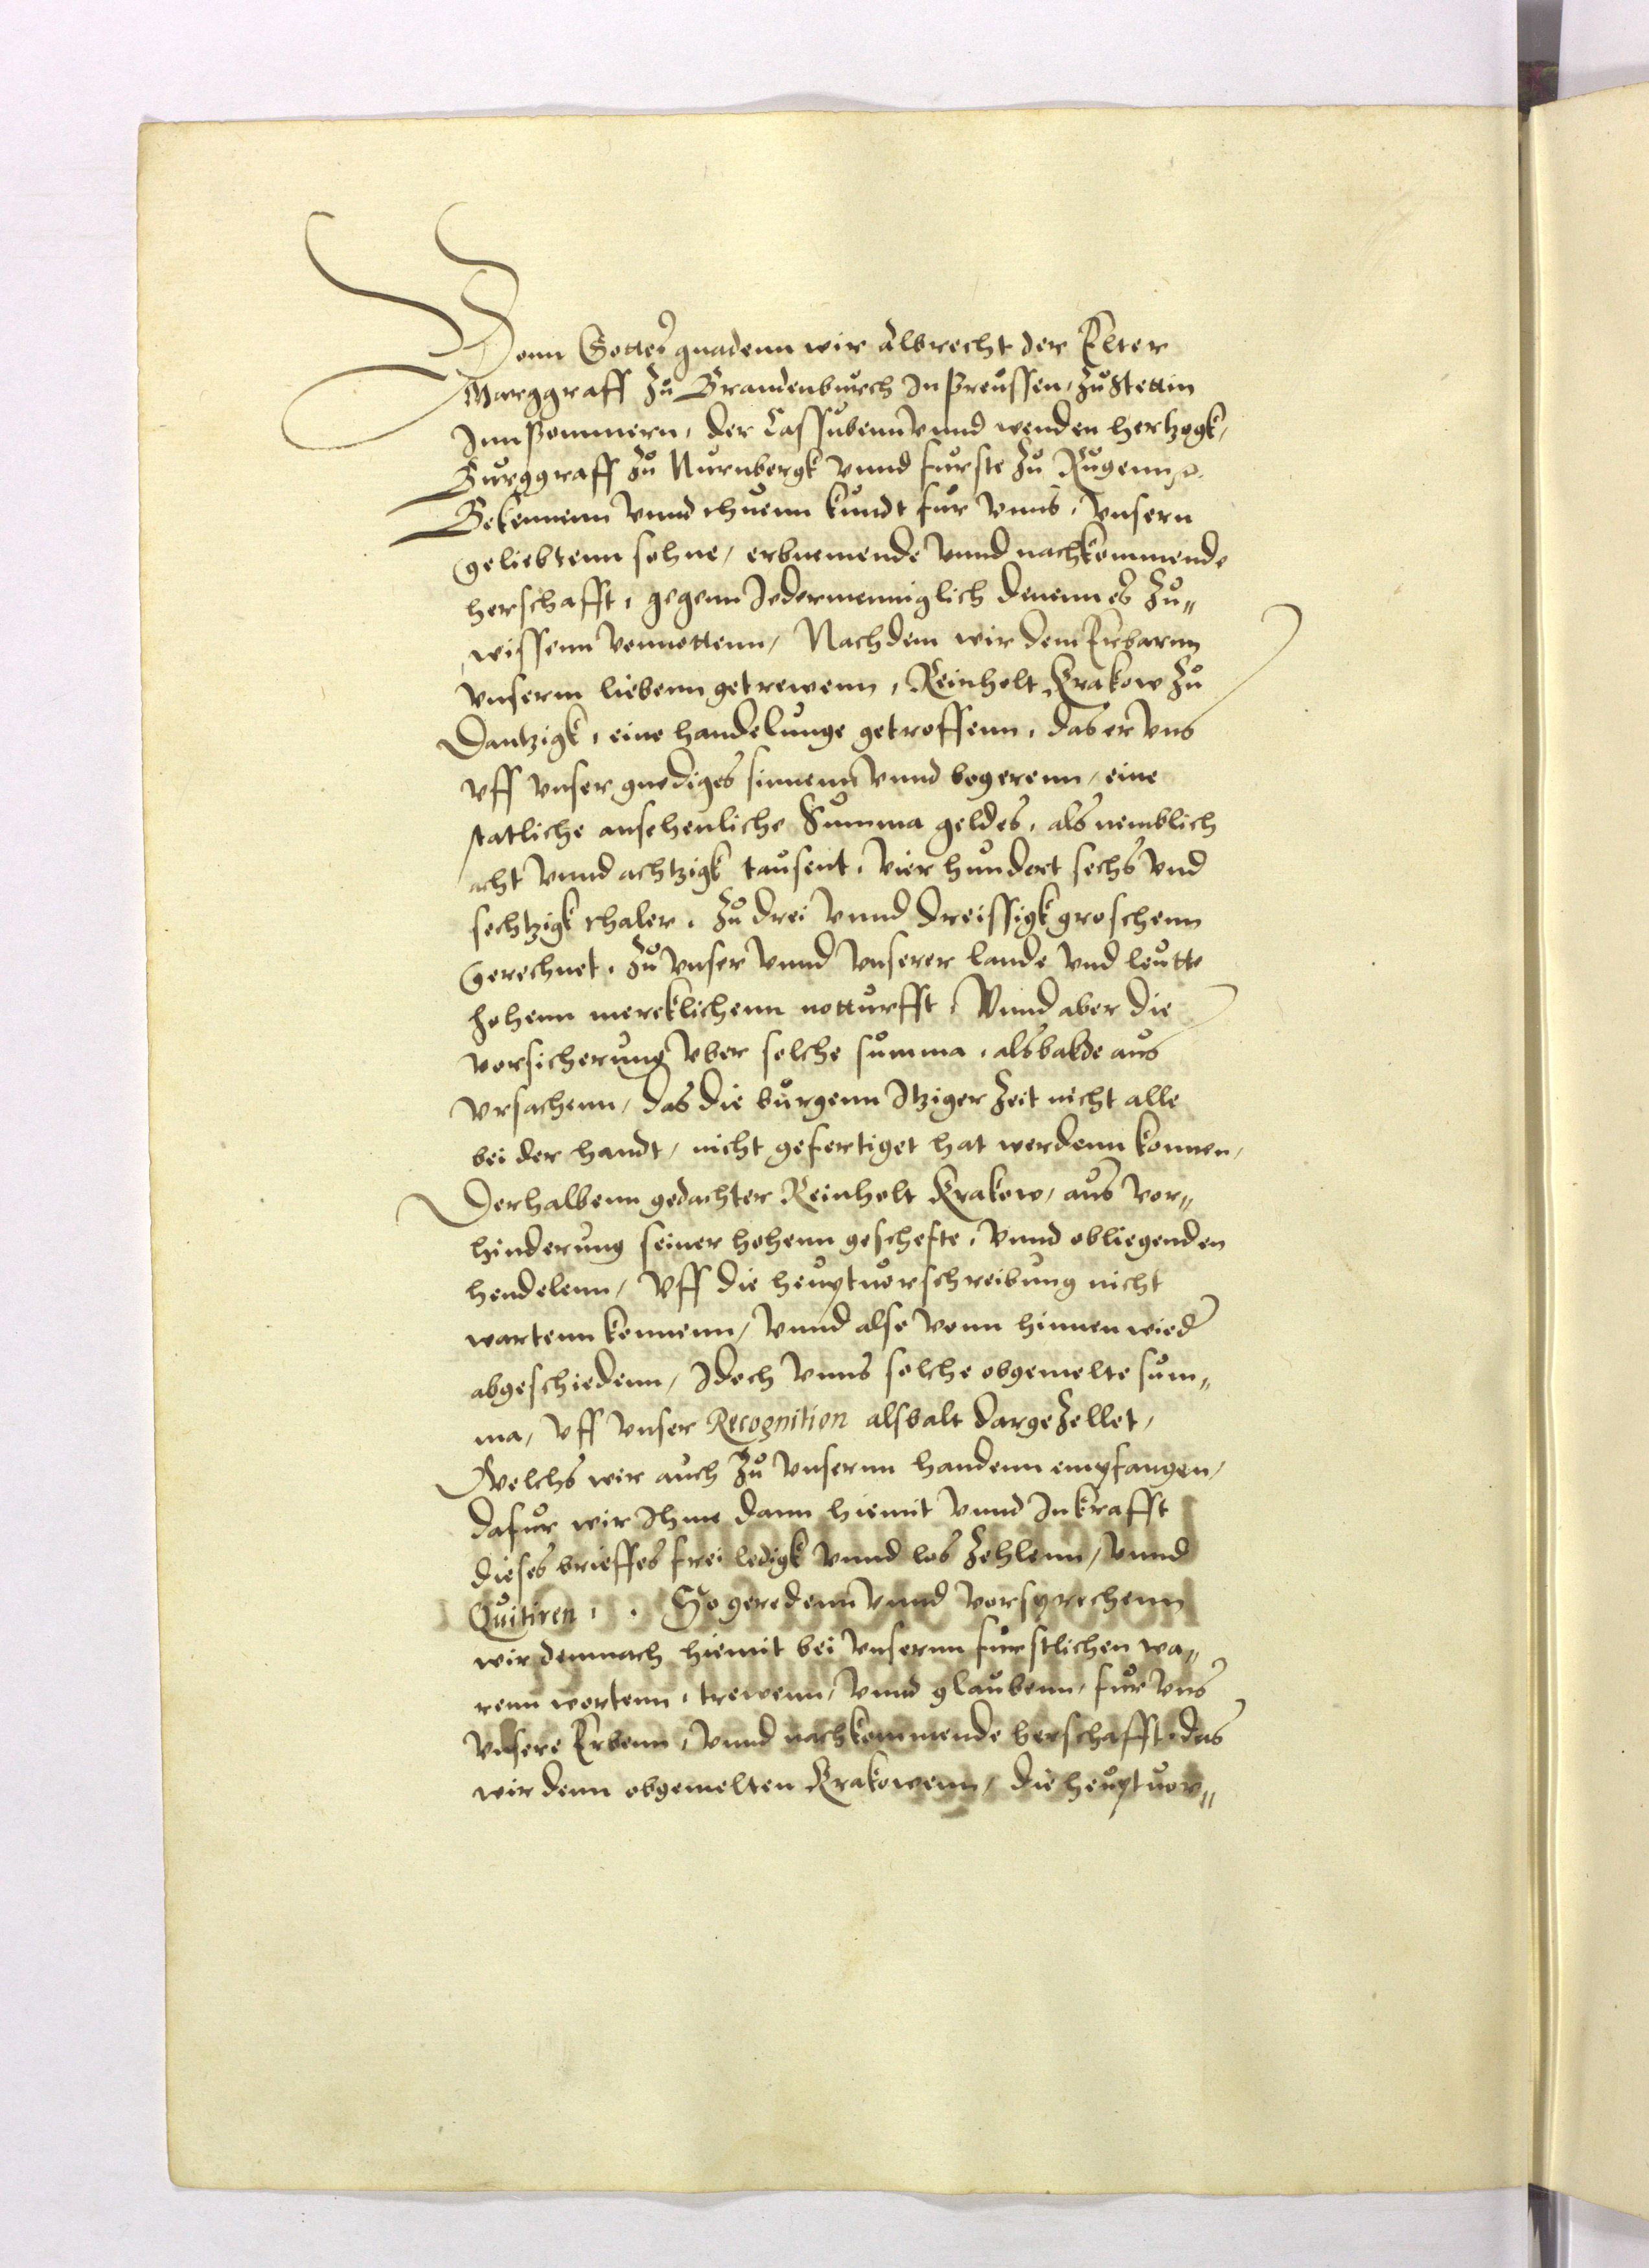 Vonn Gottes gnadenn wir Albrecht der Elter
Marggraff zu Brandenburch In Preussen, zu Stettin
Inn Pommern, der Cassubenn vnnd wenden hertzogk,
Burggraff zu Nurnbergk vnnd furste zu Rugenn
Bekennenn vnnd thuenn kundt fur vnns, vnsern
geliebtenn sohne, erbnemende vnnd nachkommende
herschafft, gegenn Jedermenniglich denenn es zu„
wissenn vonnottenn, Nachdem wir dem Erbarnn
vnserm liebenn getrewenn, Reinholt Krakow zu
Dantzigk, eine handelunge getroffenn, das er vns
vff vnser gnediges sinnenn vnnd begerenn, eine
statliche ansehenliche Summa geldes, als nemblich
acht vnnd achtzigk tausent, vier hundert sechs vnd
sechtzigk thaler, zu drei vnnd dreissigk groschenn
gerechnet, zu vnser vnnd vnserer lande vnd leutte
hohenn mercklichenn notturfft, Vnnd aber die
vorsicherung vber solche summa, alsbalde aus
vrsachenn, das die burgenn Itziger zeit nicht alle
bei der handt, nicht gefertiget hat werdenn konnen,
Derhalbenn gedachter Reinholt Krakow, aus vor„
hinderung seiner hohenn geschefte, vnnd obliegenden
hendelenn, vff die heuptuorschreibung nicht
wartenn konnenn, vnnd also vonn hinnen wied
abgeschiedenn, Idoch vnns solche obgemelte sum„
ma, vff vnser Recognition alsbalt dargezellet,
Welchs wir auch zu vnsernn handenn empfangen,
dafur wir Ihme dann hiemit vnnd In krafft
dieses brieffes frei ledigk vnnd los zehlenn, vnnd
Quitiren, . So geredenn vnnd vorsprechenn
wir demnach hiemit bei vnsernn furstlichen wa„
renn wortenn, trewenn, vnnd glaubenn, fur vns
vnsere Erbenn, vnnd nachkommende herschafft, das
wir denn obgemelten Krakowenn, die heuptuor„